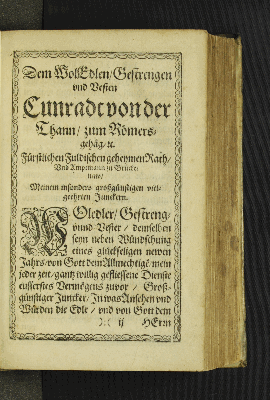 Dem WolEdlen/Gestrengen
vnd Vesten
Cunradt von der
Thann/ zum Römers-
gehäg/ ꝛc.
Fürstlichen Fuldischen geheymen Rath/
Vnd Amptmann zu
Meinem insonders großgünstigen viel-
geehrten Junckern.
WOledler/ Gestreng-
vnnd Vester / demselben
seyn neben Wündschung
eines glückseligen newen
Jahrs/ von Gott dem Allmechtigẽ mein
jeder zeit/ gantz willig geflissene Dienste
eusserstes Vermögens zuvor / Groß-
günstiger Juncker/ In was Ansehen vnd
Würden die Edle / vnd von Gott dem
ij HErrn